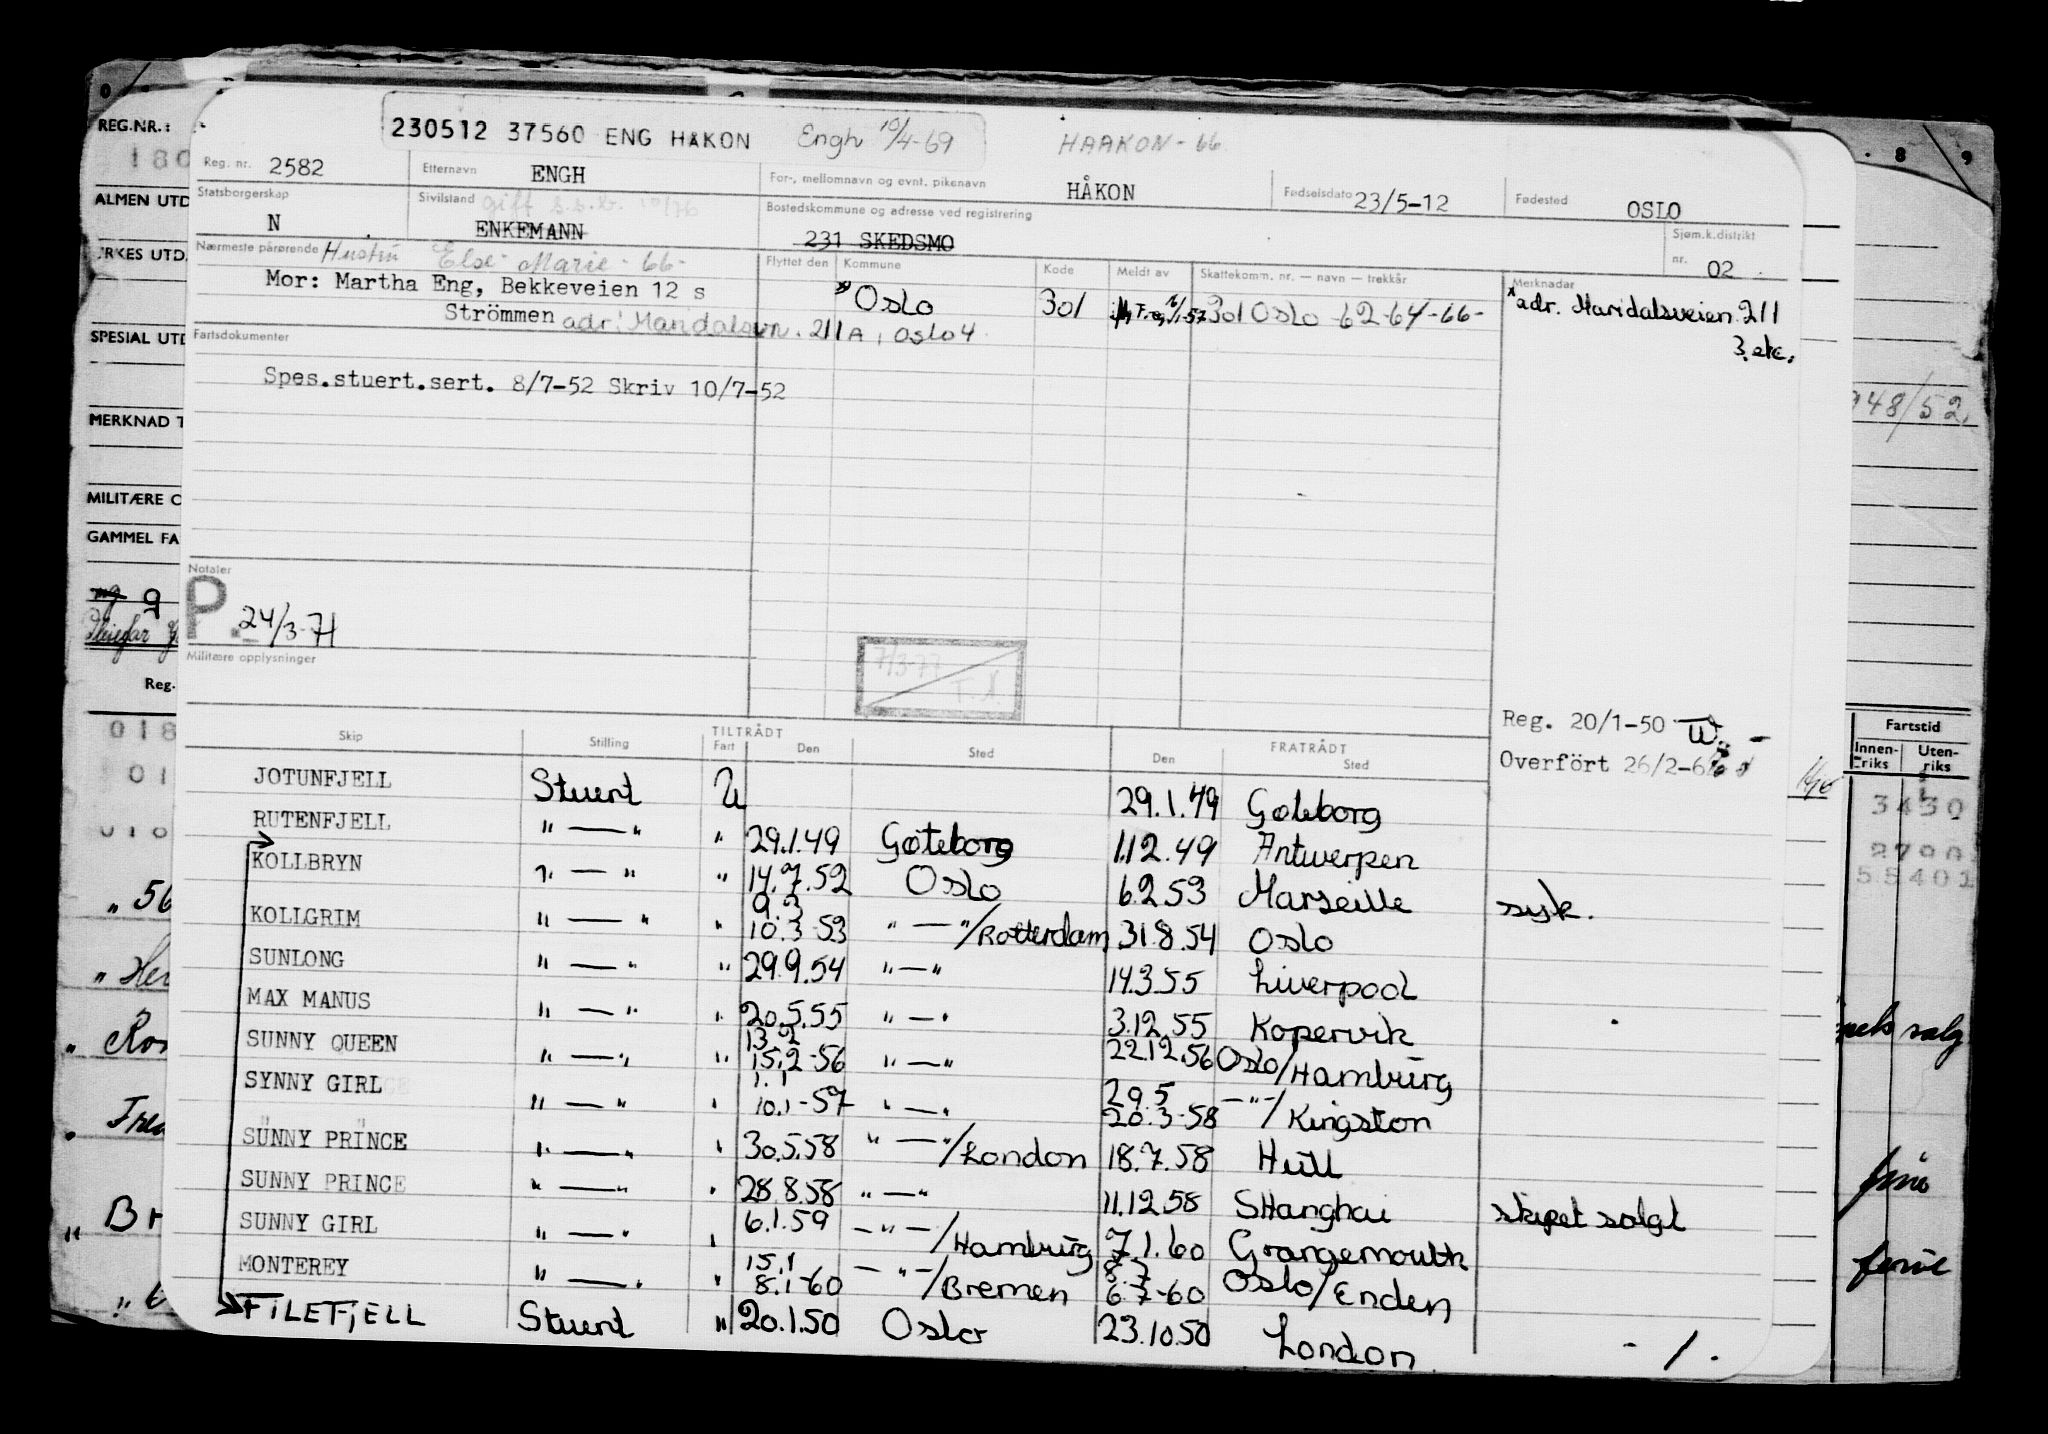 230512 37560 ENG HAKON Engh 10/4-69 HAAKON-66
REG.NR.:
180
Reg. nr. 2582 Etternavn ENGH For-, mellomnavn og evnt. pikenavn HÅKON Fødselsdato 23/5-12 Fødested OSLO
8 9
ALMEN UTD
Statsborgerskap N Sivilstand gift s.s.b. 10/76 ENKEMANN Bostedskommune og adresse ved registrering 231 SKEDSMO Sjøm.k.distrikt nr. 02
YRKES UTD.
Nærmeste pårørende Hustru Else Marie -66- Flyttet den Kommune Kode Meldt av Skattekomm. nr. — navn — trekkår Merknader
Mor: Martha Eng, Bekkeveien 12 s Oslo 301 301 Oslo -62-64-66- adr. Maridalsveien 211
Strömmen adr: Maridalsvn. 211 A, Oslo 4 3. etc.
SPESIAL UTD
Fartsdokumenter
Spes.stuert.sert. 8/7-52 Skriv 10/7-52
948/52
MERKNAD T
MILITÆRE O
GAMMEL FA
Notater
P. 24/3-71
Militære opplysninger
7/3-77
Reg.
Reg. 20/1-50
Overfört 26/2-6
Fartstid
Innen-riks Uten-riks
Skip Stilling TILTRÅDT Fart Den Sted FRATRÅDT Den Sted
JOTUNFJELL Stuert U 29.1.49 Gøteborg
RUTENFJELL " — " " 29.1.49 Gøteborg 1.12.49 Antwerpen
KOLLBRYN " — " " 14.7.52 Oslo 6.2.53 Marseille syk.
KOLLGRIM " — " " 9.3 10.3-53 " — "/Rotterdam 31.8.54 Oslo
SUNLONG " — " " 29.9.54 " — " 14.3.55 Liverpool
MAX MANUS " — " " 20.5.55 " — " 3.12.55 Kopervik
SUNNY QUEEN " — " " 13.2 15.2-56 " — " 22.12.56 Oslo/Hamburg
SYNNY GIRL " — " " 1.1 10.1-57 " — " 29.5 20.3-58 — " —/Kingston
SUNNY PRINCE " — " " 30.5.58 " — "/London 18.7.58 Hull
SUNNY PRINCE " — " " 28.8.58 " — " 11.12.58 SHanghai skipet solgt
SUNNY GIRL " — " " 6.1.59 — " —/Hamburg 7.1.60 Grangemouth
MONTEREY " — " " 15.1 8.1-60 — " —/Bremen 8.7 6.7-60 Oslo/Enden
FILEFJELL Stuert " 20.1.50 Oslo 23.10.50 London - / .
018
01
3430
2790
55401
" 56
salg
ferie